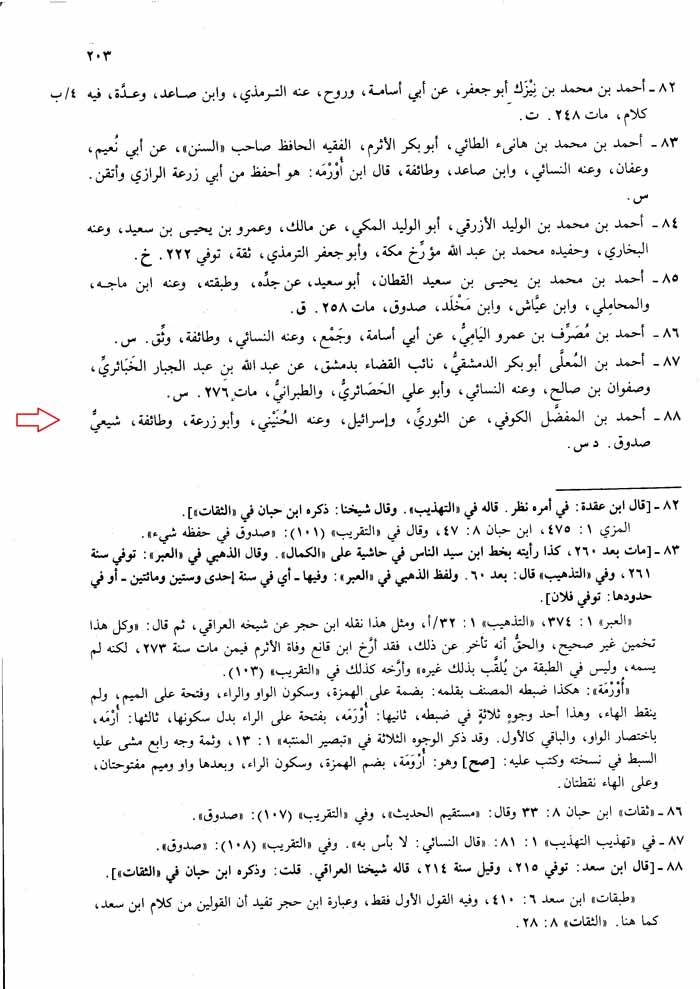 ٢٠٣
٨٢ ـ أحمد بن محمد بن نِيْزَك أبو جعفر، عن أبي أسامة، وروح، عنه الترمذي، وابن صاعد، وعدَّة، فيه ٤/ب
كلام، مات ٢٤٨. ت.
٨٣ ـ أحمد بن محمد بن هانىء الطائي، أبو بكر الأثرم، الفقيه الحافظ صاحب «السنن»، عن أبي نُعيم،
وعفان، وعنه النسائي، وابن صاعد، وطائفة، قال ابن أُوْرْمَه: هو أحفظ من أبي زرعة الرازي وأتقن.
س.
٨٤ ـ أحمد بن محمد بن الوليد الأزرقي، أبو الوليد المكي، عن مالك، وعمرو بن يحيى بن سعيد، وعنه
البخاري، وحفيده محمد بن عبد الله مؤرِّخ مكة، وأبو جعفر الترمذي، ثقة، توفي ٢٢٢. خ.
٨٥ ـ أحمد بن محمد بن يحيى بن سعيد القطان، أبو سعيد، عن جدِّه، وطبقته، وعنه ابن ماجه،
والمحاملي، وابن عيَّاش، وابن مَخْلَد، صدوق، مات ٢٥٨. ق.
٨٦ ـ أحمد بن مُصَرِّف بن عمرو اليَامِيُّ، عن أبي أسامة، وجَمْع، وعنه النسائي، وطائفة، وثِّق. س.
٨٧ ـ أحمد بن المُعلَّى أبو بكر الدمشقيُّ، نائب القضاء بدمشق، عن عبد الله بنِ عبد الجبار الخَبَائريِّ،
وصفوان بن صالح، وعنه النسائي، وأبو علي الحَصَائريُّ، والطبرانيُّ، مات ٢٧٦. س.
٨٨ ـ أحمد بن المفضَّل الكوفي، عن الثوريِّ، وإسرائيل، وعنه الحُنَيْني، وأبو زرعة، وطائفة، شيعيٌّ
صدوق. د س.
٨٢ ـ [قال ابن عقدة: في أمره نظر. قاله في «التهذيب». وقال شيخنا: ذكره ابن حبان في «الثقات»].
المزي ١: ٤٧٥، ابن حبان ٨: ٤٧، وقال في «التقريب» (١٠١): «صدوق في حفظه شيء».
٨٣ ـ [مات بعد ٢٦٠، كذا رأيته بخط ابن سيد الناس في حاشية على «الكمال». وقال الذهبي في «العبر»: توفي سنة
٢٦١، وفي «التذهيب» قال: بعد ٦٠. ولفظ الذهبي في «العبر»: وفيها ـ أي في سنة إحدى وستين ومائتين ـ أو في
حدودها: توفي فلان].
«العبر» ١: ٣٧٤، «التذهيب» ١: ٣٢/أ، ومثل هذا نقله ابن حجر عن شيخه العراقي، ثم قال: «وكل هذا
تخمين غير صحيح، والحقُّ أنه تأخر عن ذلك، فقد أرَّخ ابن قانع وفاة الأثرم فيمن مات سنة ٢٧٣، لكنه لم
يسمه، وليس في الطبقة من يُلقَّب بذلك غيره» وأرَّخه كذلك في «التقريب» (١٠٣).
«أُوْرْمَة»: هكذا ضبطه المصنف بقلمه: بضمة على الهمزة، وسكون الواو والراء، وفتحة على الميم، ولم
ينقط الهاء، وهذا أحد وجوهٍ ثلاثةٍ في ضبطه، ثانيها: أُوْرَمَه، بفتحة على الراء بدل سكونها، ثالثها: أُرْمَه،
باختصار الواو، والباقي كالأول. وقد ذكر الوجوه الثلاثة في «تبصير المنتبه» ١: ١٣، وثمة وجه رابع مشى عليه
السبط في نسخته وكتب عليه: [صح] وهو: أُرْوَمَة، بضم الهمزة، وسكون الراء، وبعدها واو وميم مفتوحتان،
وعلى الهاء نقطتان.
٨٦ ـ «ثقات» ابن حبان ٨: ٣٣ وقال: «مستقيم الحديث»، وفي «التقريب» (١٠٧): «صدوق».
٨٧ ـ في «تهذيب التهذيب» ١: ٨١: «قال النسائي: لا بأس به». وفي «التقريب» (١٠٨): «صدوق».
٨٨ ـ [قال ابن سعد: توفي ٢١٥، وقيل سنة ٢١٤، قاله شيخنا العراقي. قلت: وذكره ابن حبان في «الثقات»].
«طبقات» ابن سعد ٦: ٤١٠، وفيه القول الأول فقط، وعبارة ابن حجر تفيد أن القولين من كلام ابن سعد،
كما هنا. «الثقات» ٨: ٢٨.